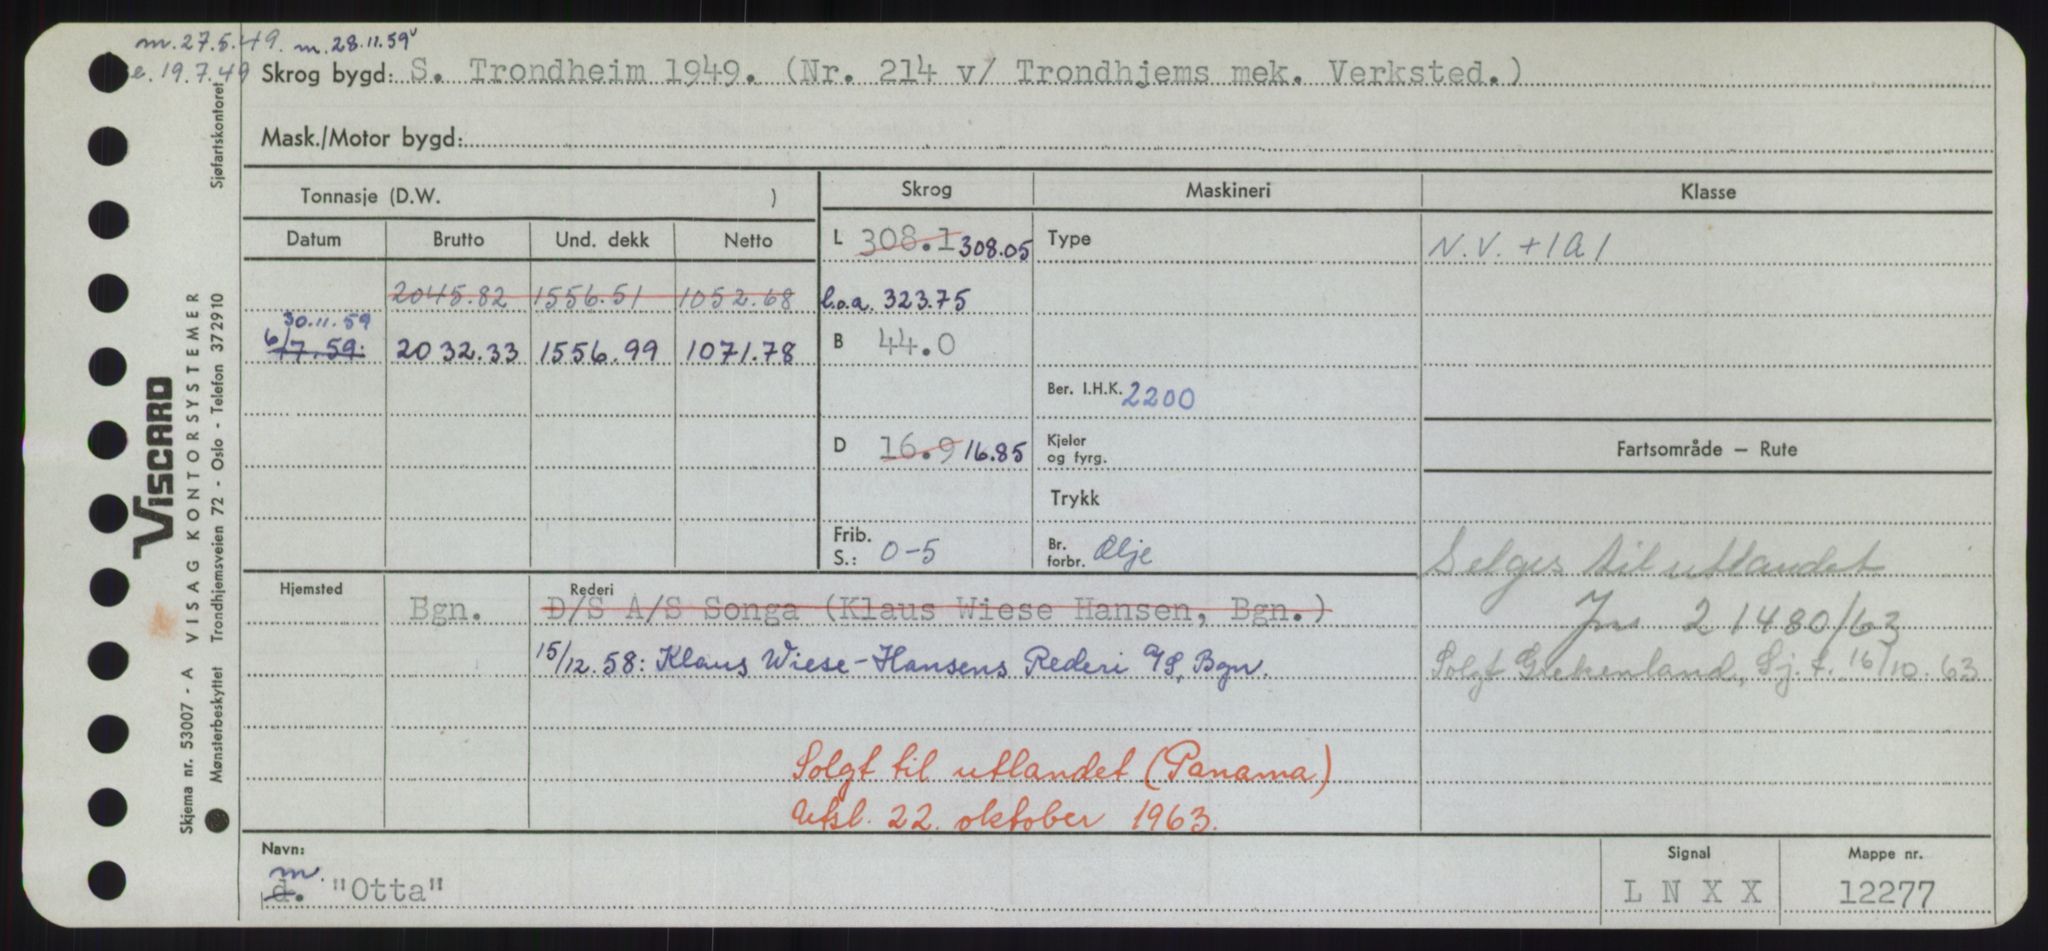 m. 27.5.49. m. 28.11.59
e. 19.7.49
Skrog bygd: S. Trondheim 1949. (Nr. 214 v/ Trondhjems mek. Verksted.)
Mask./Motor bygd:
Tonnasje (D.W. )
Skrog
Maskineri
Klasse
Datum Brutto Und. dekk Netto
L 308.1 308.05
Type
N.V. +1A1
2045.82 1556.51 1052.68
l.o.a. 323.75
30.11.59
6/7.59. 2032.33 1556.99 1071.78
B 44.0
Ber. I.H.K. 2200
D 16.9 16.85
Kjeler
og fyrg.
Fartsområde – Rute
Trykk
Frib.
S.: 0-5
Br.
forbr. Olje
Selges til utlandet
Jnr 21480/63
Solgt Grekenland, Sj. t. 16/10. 63
Hjemsted
Rederi
Bgn. D/S A/S Songa (Klaus Wiese Hansen, Bgn.)
15/12.58: Klaus Wiese-Hansens Rederi A/S, Bgn.
Solgt til utlandet (Panama)
Utsl. 22. oktober 1963.
Navn:
m.
d. "Otta"
Signal
L N X X
Mappe nr.
12277
VISCARD
VISAG KONTORSYSTEMER
Skjema nr. 53007 - A
Mønsterbeskyttet Trondhjemsveien 72 - Oslo - Telefon 372910 Sjøfartskontoret